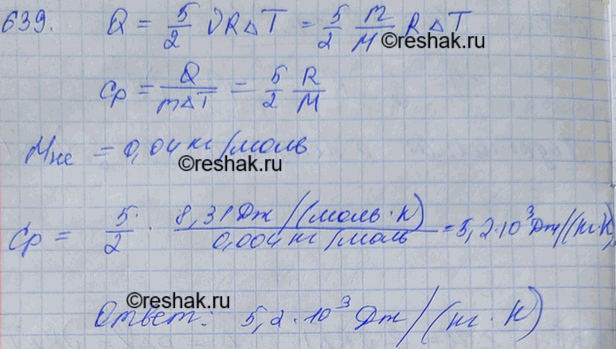 639. Q = 5/2 νRΔT = 5/2 m/M RΔT
©reshak.ru
Cp = Q/(mΔT) = 5/2 R/M
MHe = 0,04 кг/моль
©reshak.ru
Cp = 5/2 · 8,31 Дж/(моль·К) / 0,004 кг/моль = 5,2·10³ Дж/(кг·К)
©reshak.ru
Ответ: 5,2·10³ Дж/(кг·К)